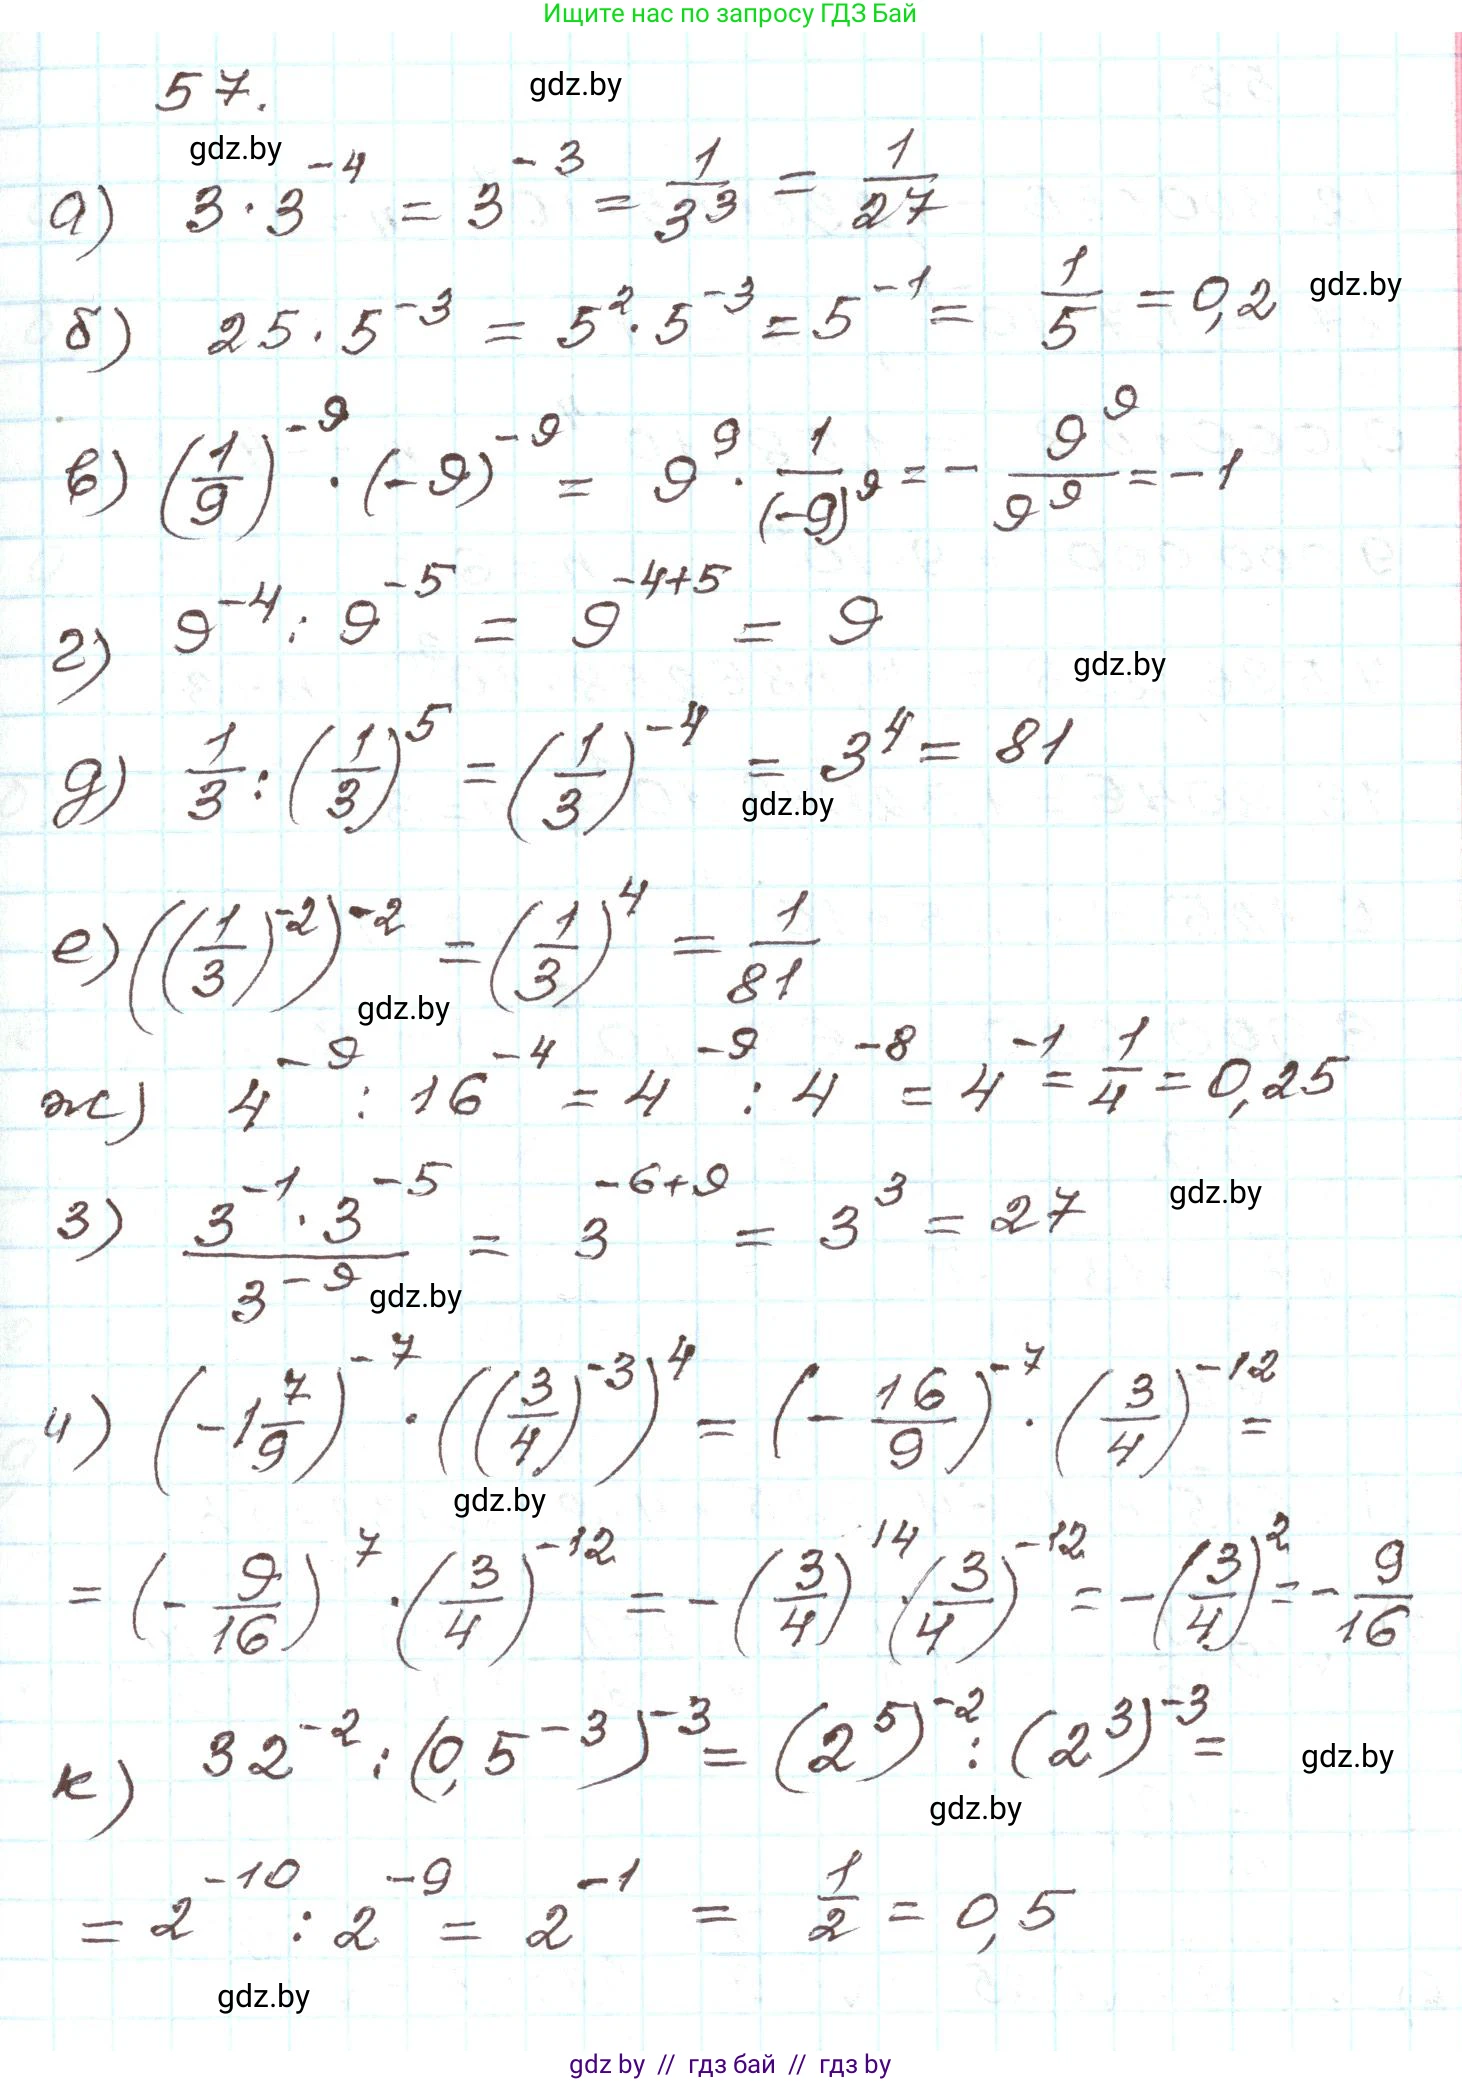 Ищите нас по запросу ГДЗ Бай
57.
gdz.by
gdz.by
а) 3 · 3^{-4} = 3^{-3} = \frac{1}{3^3} = \frac{1}{27}
б) 25 · 5^{-3} = 5^2 · 5^{-3} = 5^{-1} = \frac{1}{5} = 0,2
gdz.by
в) (\frac{1}{9})^{-9} · (-9)^{-9} = 9^9 · \frac{1}{(-9)^9} = -\frac{9^9}{9^9} = -1
г) 9^{-4} : 9^{-5} = 9^{-4+5} = 9
gdz.by
д) \frac{1}{3} : (\frac{1}{3})^5 = (\frac{1}{3})^{-4} = 3^4 = 81
gdz.by
е) ((\frac{1}{3})^{-2})^{-2} = (\frac{1}{3})^4 = \frac{1}{81}
gdz.by
ж) 4^{-9} : 16^{-4} = 4^{-9} : 4^{-8} = 4^{-1} = \frac{1}{4} = 0,25
з) \frac{3^{-1} · 3^{-5}}{3^{-9}} = 3^{-6+9} = 3^3 = 27
gdz.by
gdz.by
и) (-1\frac{7}{9})^{-7} · ((\frac{3}{4})^{-3})^4 = (-\frac{16}{9})^{-7} · (\frac{3}{4})^{-12} =
gdz.by
= (-\frac{9}{16})^7 · (\frac{3}{4})^{-12} = -(\frac{3}{4})^{14} · (\frac{3}{4})^{-12} = -(\frac{3}{4})^2 = -\frac{9}{16}
к) 32^{-2} : (0,5^{-3})^{-3} = (2^5)^{-2} : (2^3)^{-3} =
gdz.by
gdz.by
= 2^{-10} : 2^{-9} = 2^{-1} = \frac{1}{2} = 0,5
gdz.by
gdz by // гдз бай // гдз by